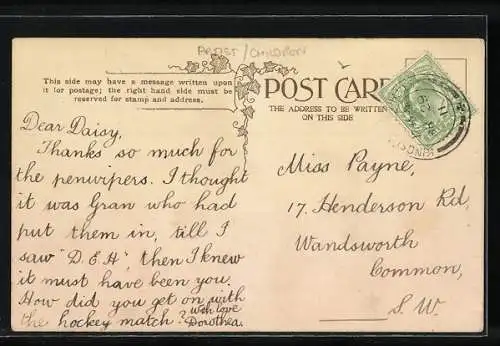 ARTIST/CHILDREN
This side may have a message written upon
it (or postage; the right hand side must be
reserved for stamp and address.
POST CARD
THE ADDRESS TO BE WRITTEN
ON THIS SIDE
Dear Daisy,
Thanks so much for
the penwipers. I thought
it was Gran who had
put them in, till I
saw "D.E.H", then I knew
it must have been you.
How did you get on with
the hockey match? With love
Dorothea.
Miss Payne,
17. Henderson Rd,
Wandsworth
Common,
S.W.